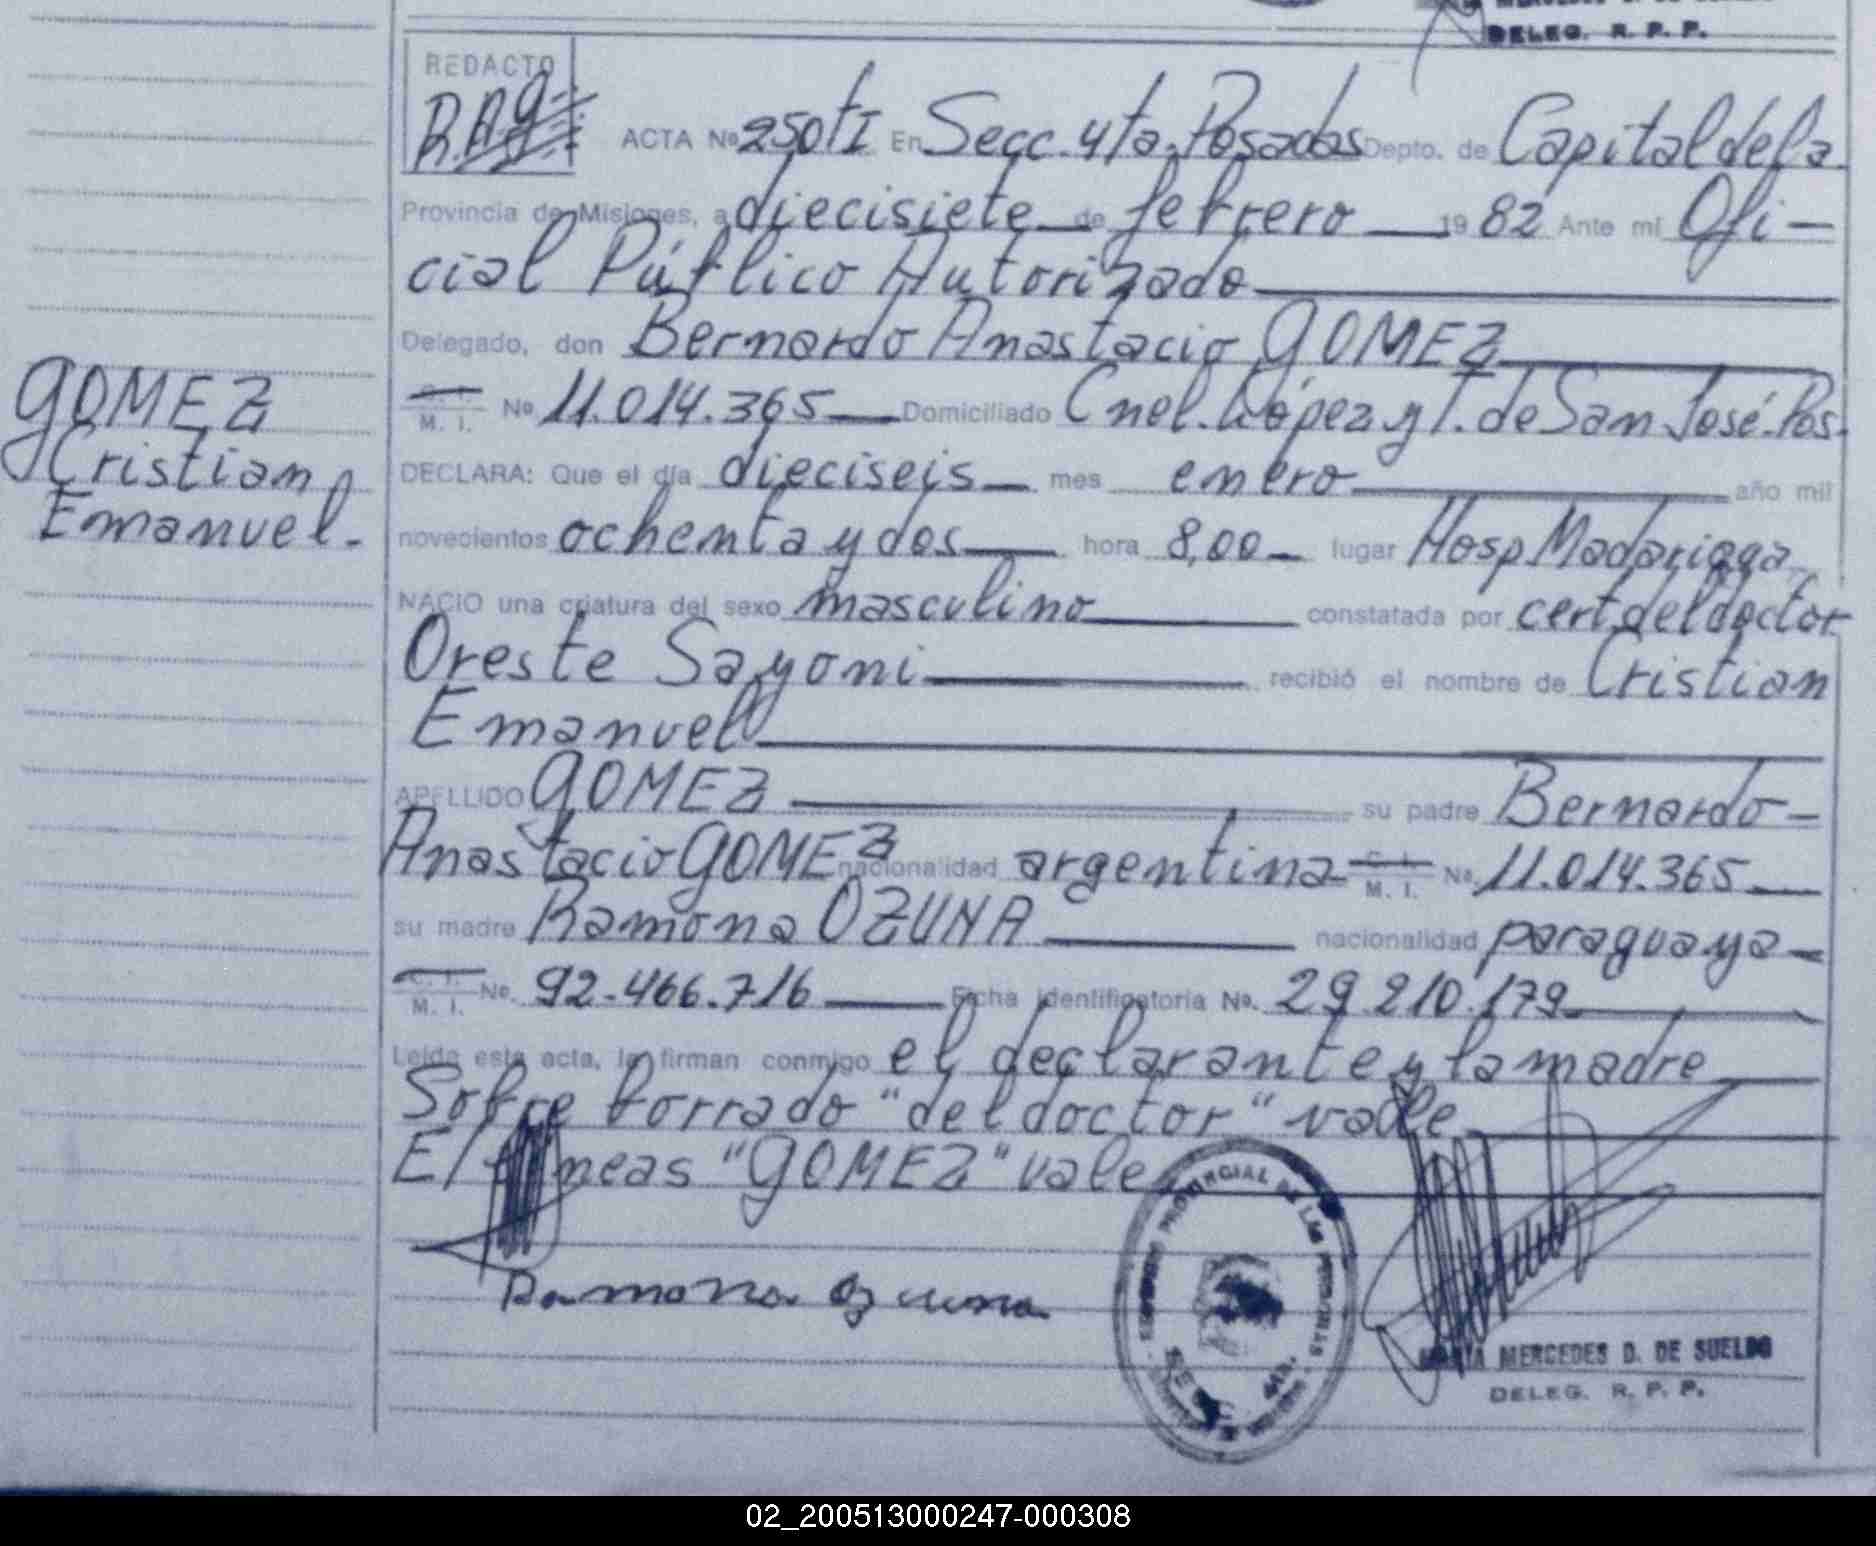 DELEG. R. P. P.
REDACTO
R.A.G.
ACTA Nº 250 TI En Secc. 4ta. Posadas Depto. de Capital de la
Provincia de Misiones, a diecisiete de febrero 1982 Ante mi Ofi-
cial Público Autorizado
Delegado, don Bernardo Anastacio GOMEZ
C. I. M. I. No. 11.014.365 Domiciliado Cnel. López y T. de San José. Pos.
GOMEZ
Cristian
Emanuel.
DECLARA: Que el día dieciseis mes enero año mil
novecientos ochenta y dos hora 8,00 lugar Hosp Madariaga
NACIO una criatura del sexo masculino constatada por cert. del doctor
Oreste Sayoni recibió el nombre de Cristian
Emanuel
APELLIDO GOMEZ su padre Bernardo-
Anastacio GOMEZ nacionalidad argentina C. I. M. I. No. 11.014.365
su madre Ramona OZUNA nacionalidad paraguaya
C. I. M. I. No. 92.466.716 Ficha Identificatoria No. 29.210.179
Leída esta acta, la firman conmigo el declarante y la madre
Sobre borrado "del doctor" vale
E/líneas "GOMEZ" vale
Ramona Ozuna
PROVINCIAL DE LAS PERSONAS
MARIA MERCEDES D. DE SUELDO
DELEG. R. P. P.
02_200513000247-000308